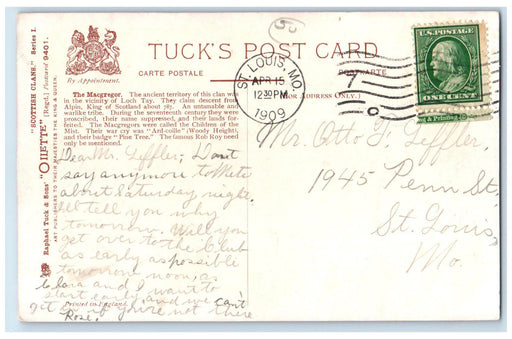 TUCK'S POST CARD
CARTE POSTALE
POSTKARTE
(FOR ADDRESS ONLY.)
By Appointment.
"SCOTTISH CLANS." Series I.
"OILETTE" [Regd.] Postcard 9401.
Raphael Tuck & Sons'
ART PUBLISHERS TO THEIR MAJESTIES THE KING & QUEEN.
The Macgregor. The ancient territory of this clan was
in the vicinity of Loch Tay. They claim descent from
Alpin, King of Scotland about 787. An untamable and
warlike tribe. During the seventeenth century they were
proscribed, their name suppressed, and their lands for-
feited. The Macgregors were called the Children of the
Mist. Their war cry was "Ard-coille" (Woody Height),
and their badge "Pine Tree." The famous Rob Roy need
only be mentioned.
ST. LOUIS, MO.
APR 15
12 30 PM
1909
U.S. POSTAGE
ONE CENT
& Printing
Dear Mr. Leffler; Don't
say anymore to Meta
about Saturday night.
I'll tell you why
tomorrow. Will you
get over to the Club
as early as possible
tomorrow noon, as
Clara and I want to
start early, and we can't
get in if you're not there
Rose.
Printed in England.
Mr. Otto F. Leffler,
1945 Penn St,
St. Louis,
Mo.